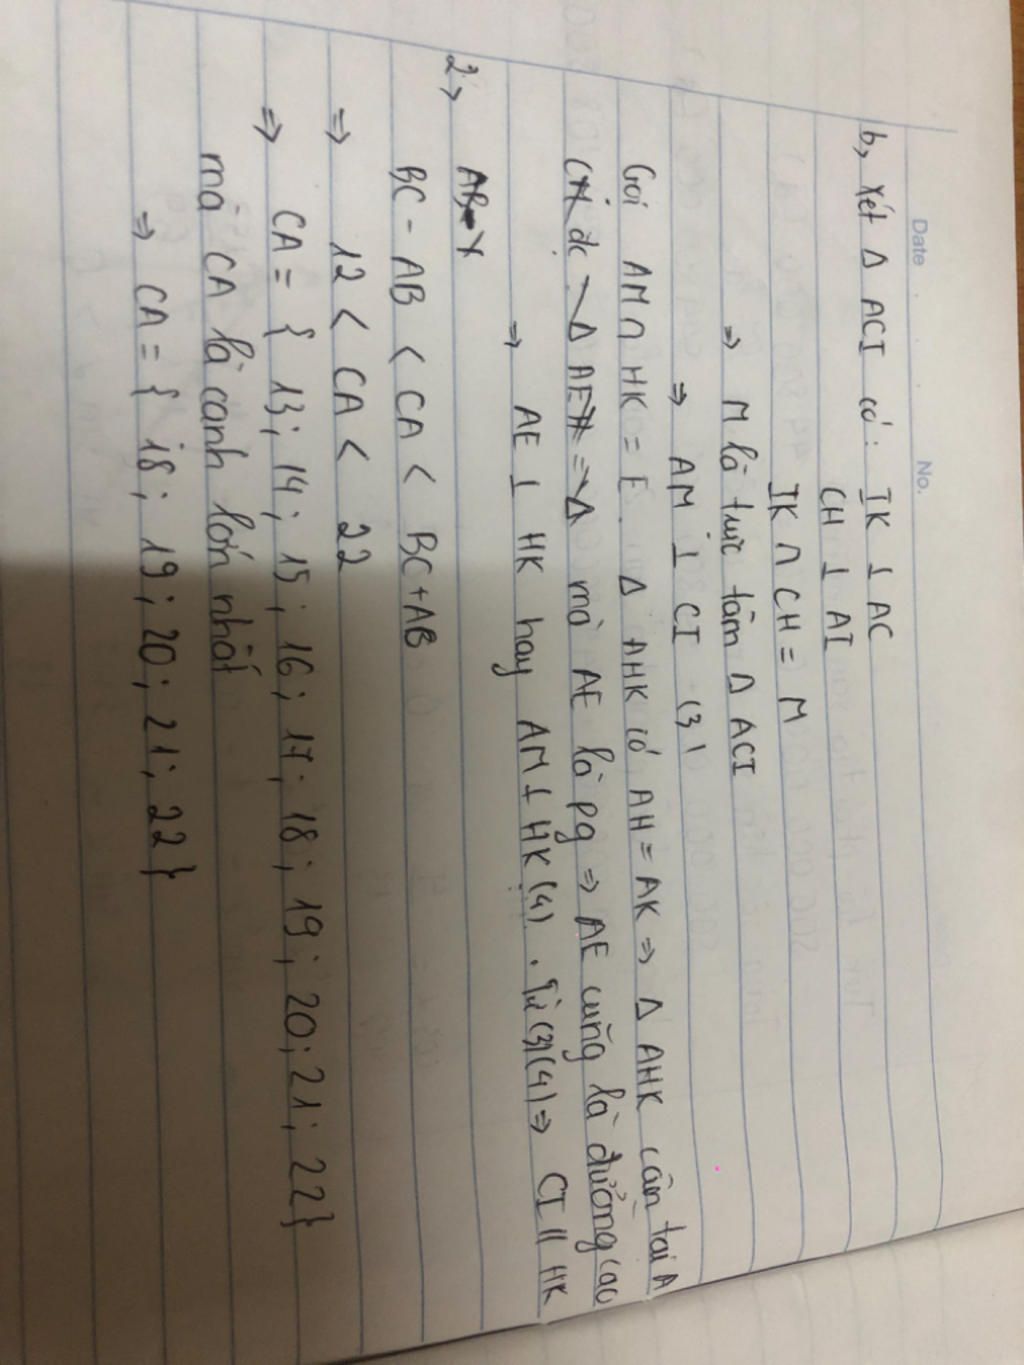 Date No.
b, Xét Δ ACI có: IK ⊥ AC
CH ⊥ AI
IK ∩ CH = M
=> M là trực tâm Δ ACI
=> AM ⊥ CI (3)
Gọi AM ∩ HK = E. Δ AHK có AH = AK => Δ AHK cân tại A
mà AE là pg => AE cũng là đường cao
=> AE ⊥ HK hay AM ⊥ HK (4). Từ (3)(4) => CI // HK
2,
BC - AB < CA < BC + AB
=> 12 < CA < 22
=> CA = { 13; 14; 15; 16; 17; 18; 19; 20; 21; 22}
mà CA là cạnh lớn nhất
=> CA = { 18; 19; 20; 21; 22}